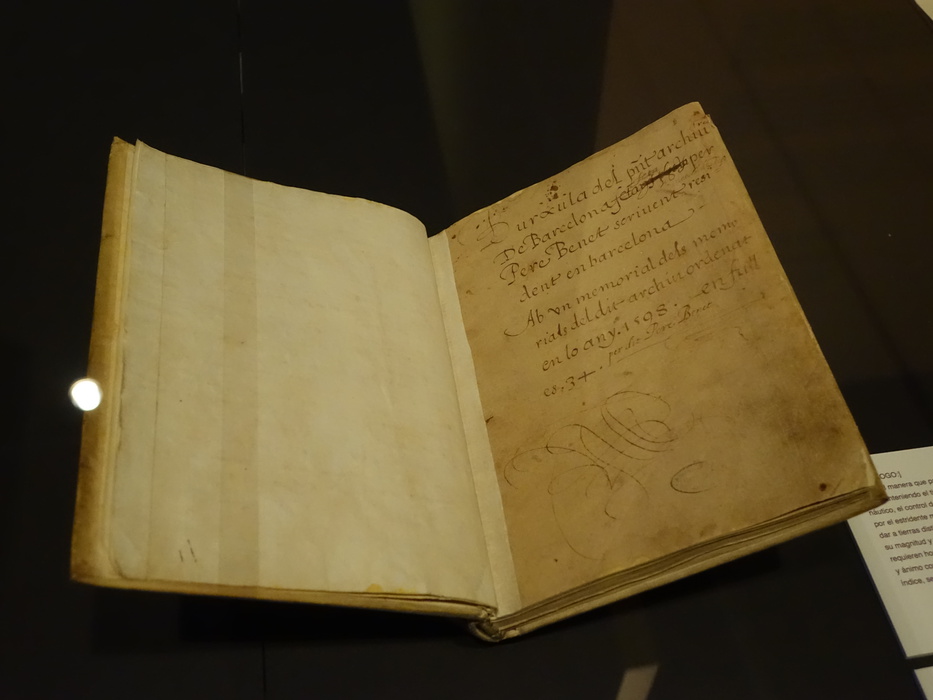 Burxula del pñt archiu
De Barcelona per
Pere Benet scrivent resi
dent en barcelona
Ab vn memorial dels memo
rials del dit archiu ordenat
en lo any .1598. en full
es. 34. per dit Pere Benet
OGO]
manera que p
nteniendo el t
náutico, el control d
por el estridente m
dar a tierras dist
su magnitud y
requieren ho
y ánimo co
Indice, se